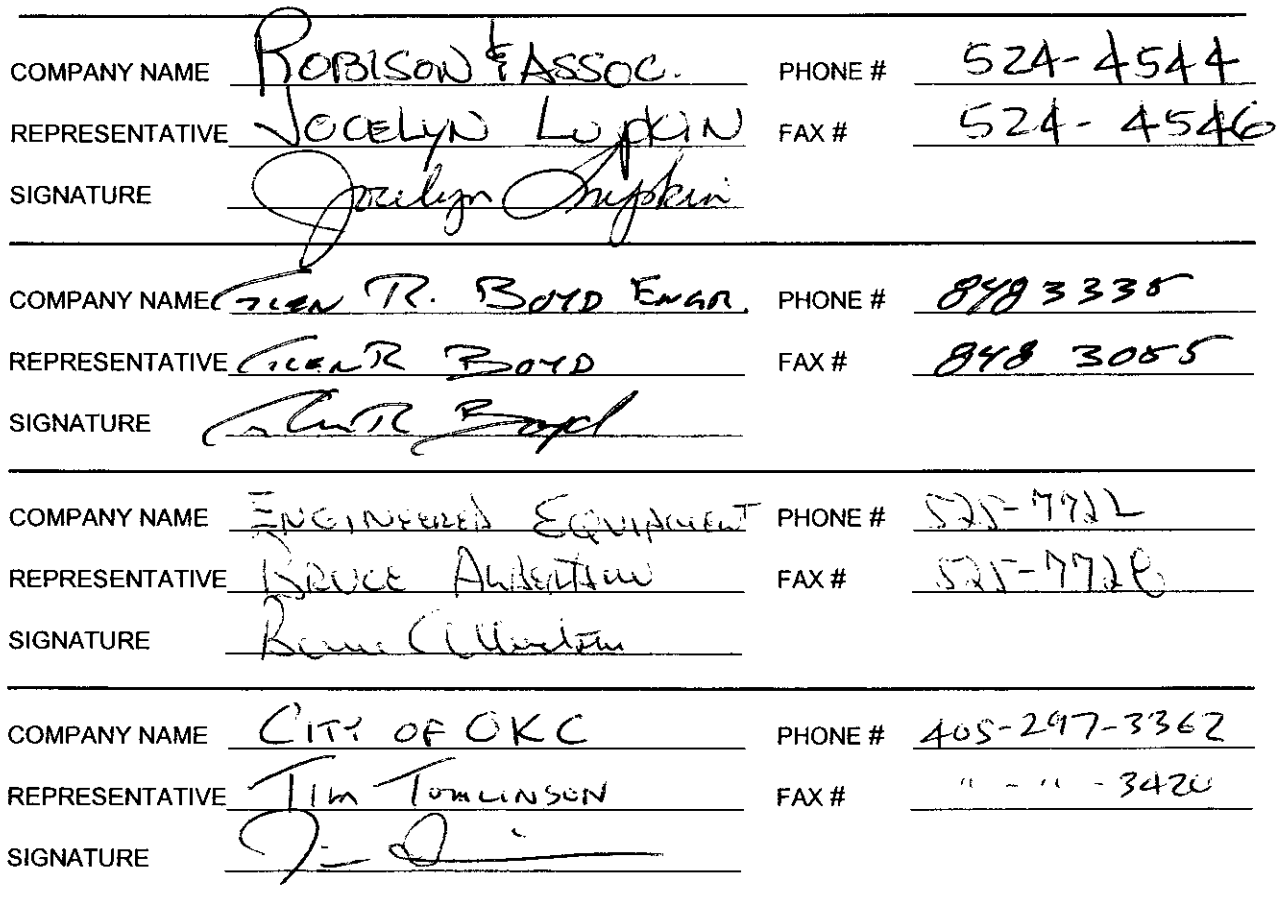 COMPANY NAME ROBISON & ASSOC. PHONE # 524-4544
REPRESENTATIVE JOCELYN LUPKIN FAX # 524-4546
SIGNATURE Jocelyn Lupkin
COMPANY NAME GLEN R. BOYD ENGR. PHONE # 848 3335
REPRESENTATIVE GLEN R BOYD FAX # 848 3055
SIGNATURE Glen R Boyd
COMPANY NAME ENGINEERED EQUIPMENT PHONE # 525-7722
REPRESENTATIVE BRUCE ALBERTSON FAX # 525-7728
SIGNATURE Bruce Albertson
COMPANY NAME CITY OF OKC PHONE # 405-297-3362
REPRESENTATIVE TIM TOMLINSON FAX # " - " - 3420
SIGNATURE